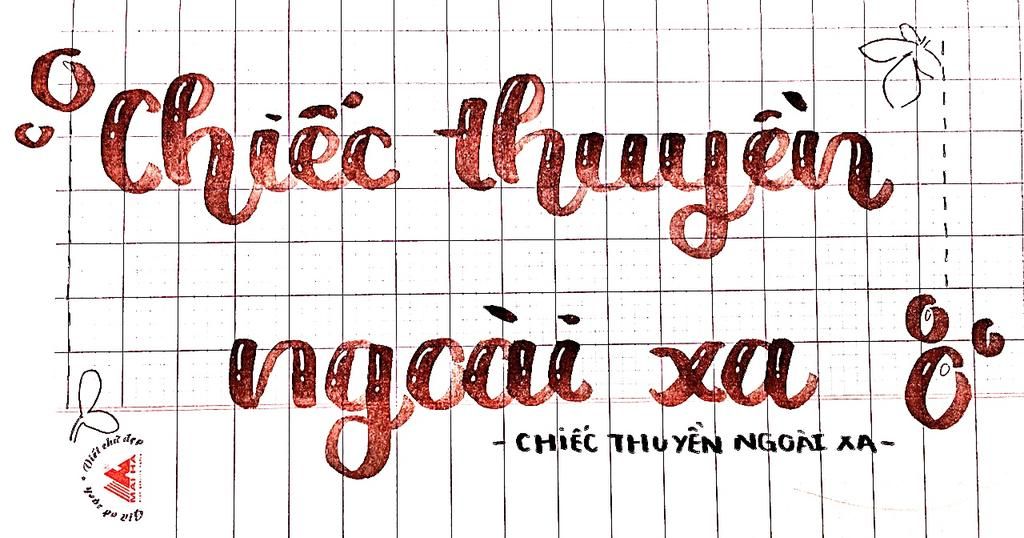 Chiếc thuyền
ngoài xa
- CHIẾC THUYỀN NGOÀI XA -
Viết chữ đẹp
MAI HÀ
Giữ vở sạch